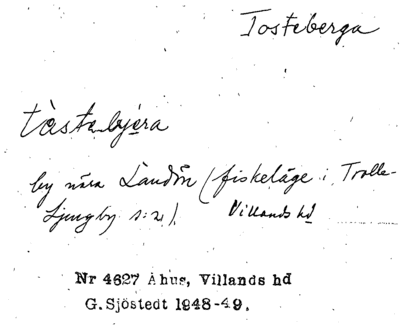 Tosteberga
tåstabjera
by nära Landön (fiskeläge i Trolle-
Ljungby s:n). Villands hd
Nr 4627 Åhus, Villands hd
G. Sjöstedt 1948-49.